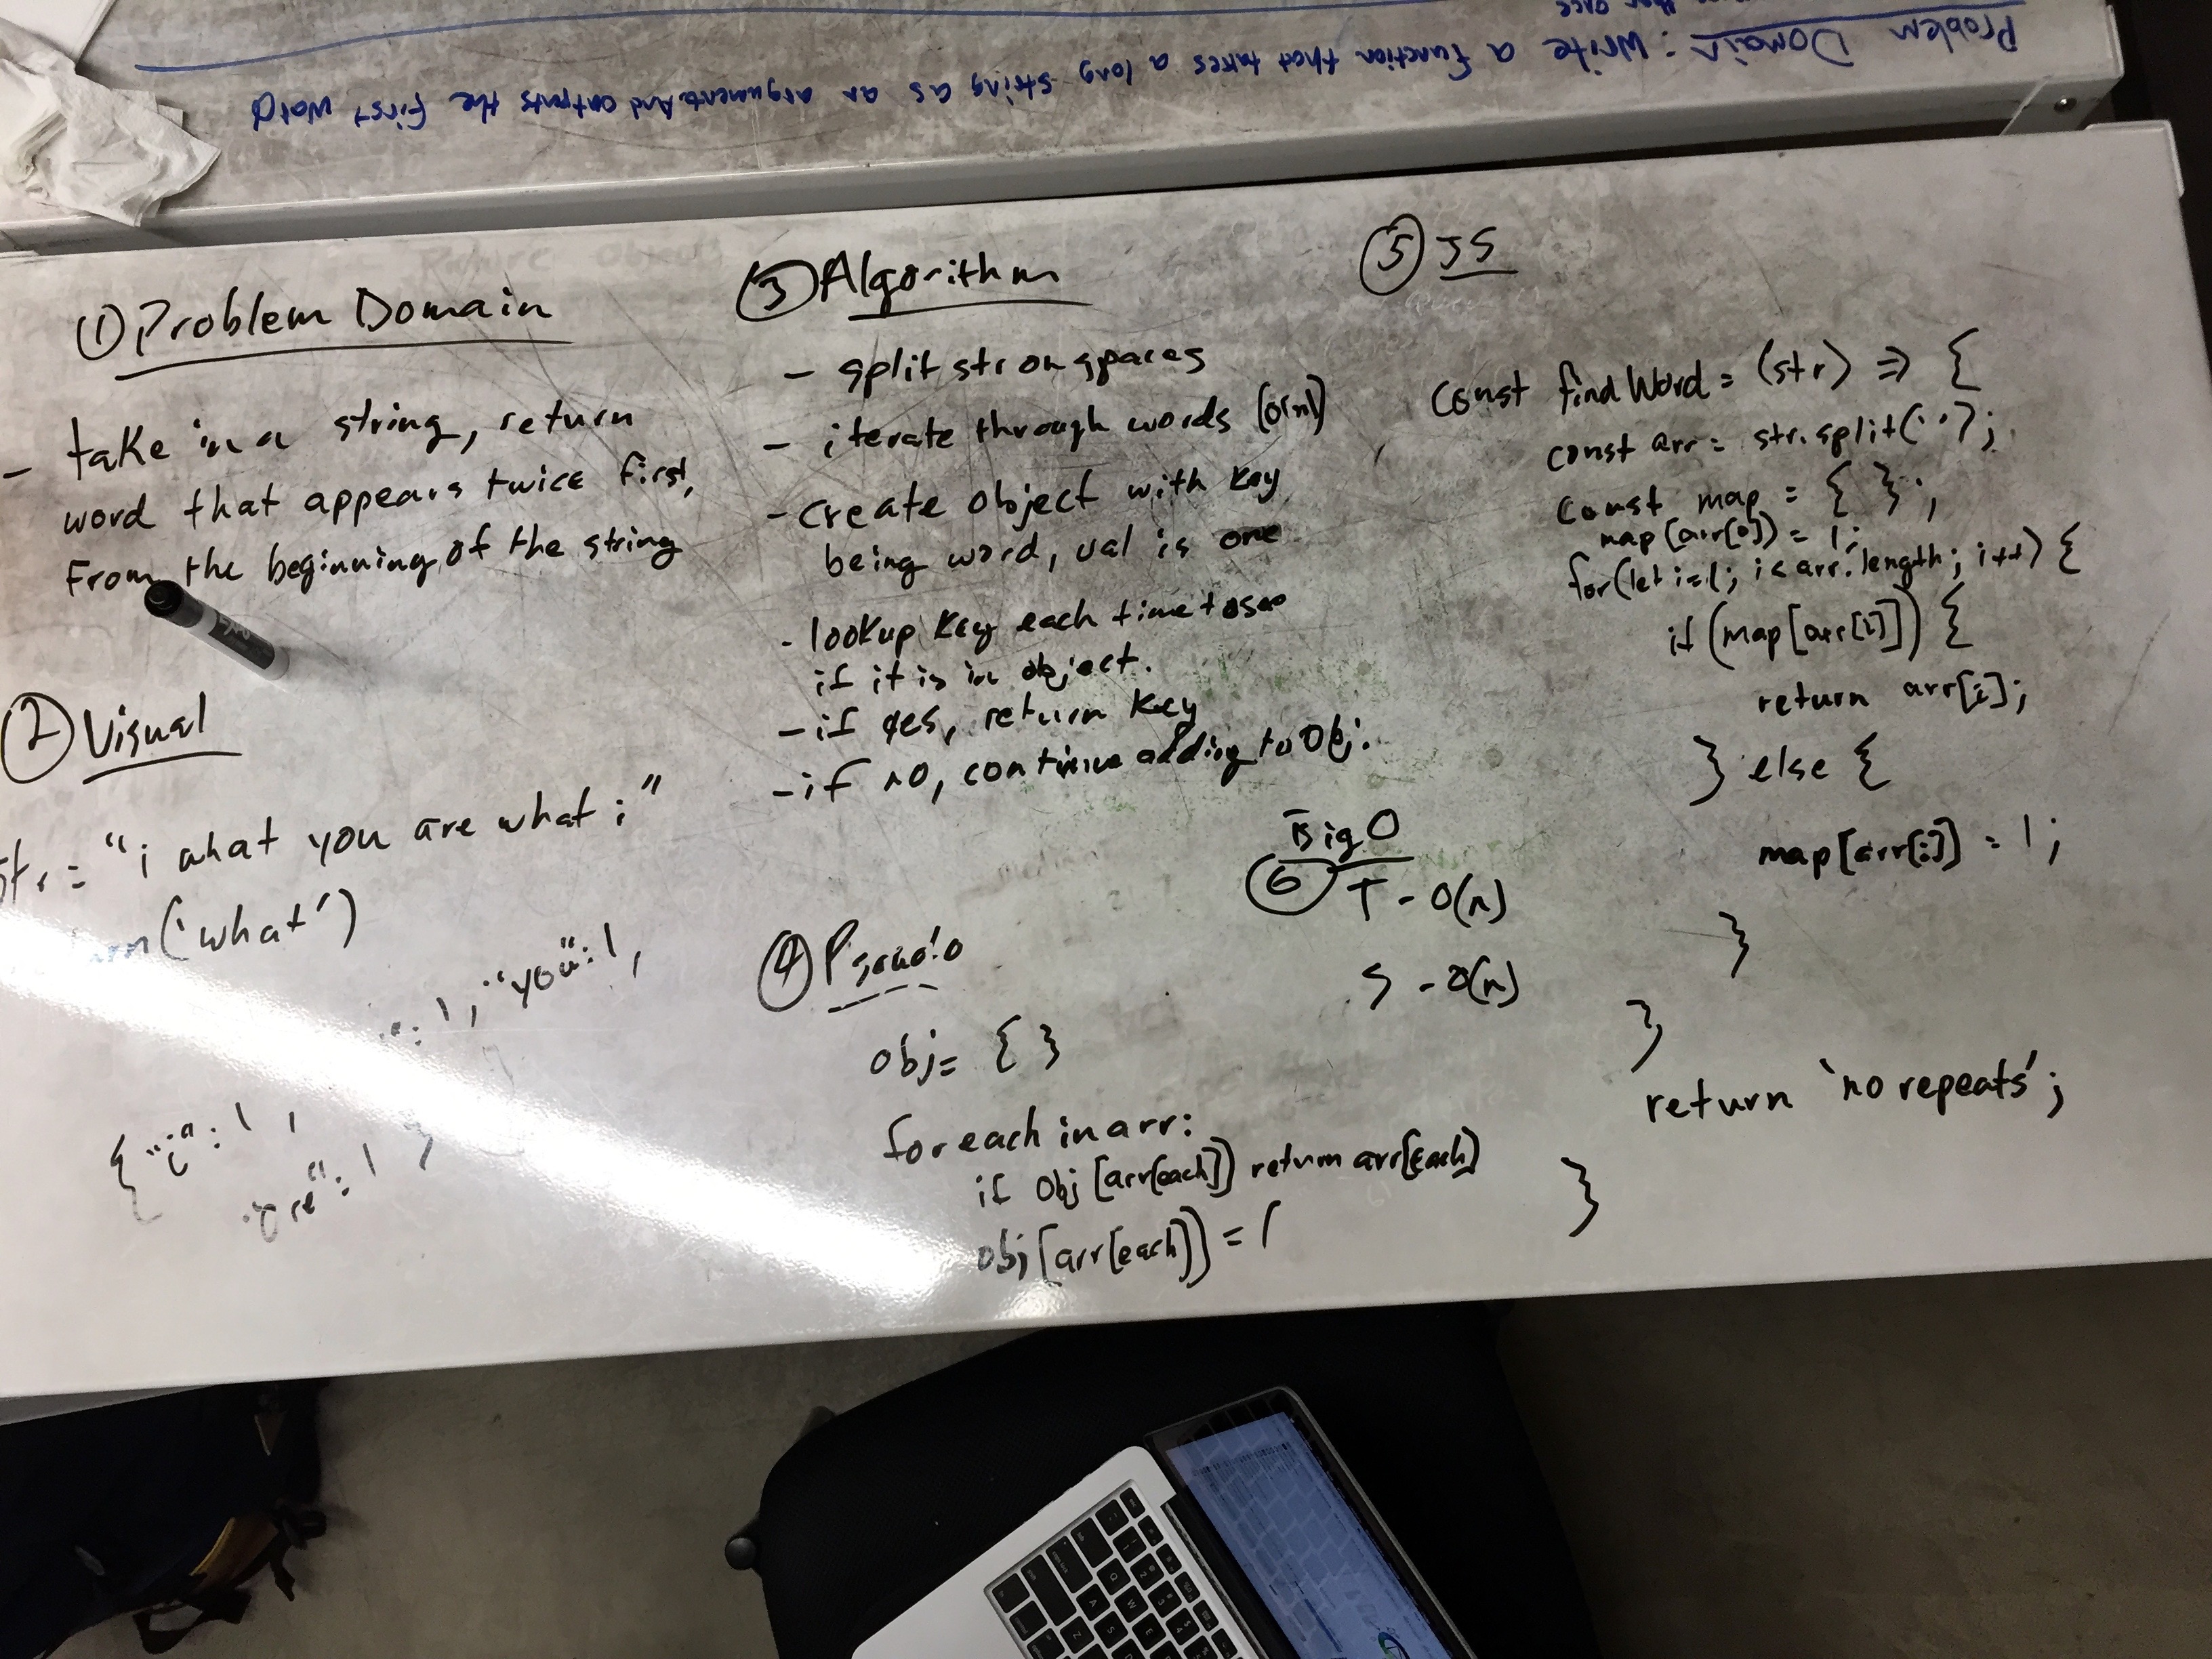 Problem Domain: Write a function that takes a long string as an argument and outputs the first word
than once
① Problem Domain
- take in a string, return
word that appears twice first,
From the beginning of the string
② Visual
str = "i what you are what i"
('what')
": 1, "you": 1,
{ "i": 1,
"are": 1 }
③ Algorithm
- split str on spaces
- iterate through words (O(n))
- create object with key
being word, val is one
- lookup key each time to see
if it is in object.
- if yes, return key
- if no, continue adding to Obj.
④ Pseudo
obj = { }
for each in arr:
if Obj [arr[each]] return arr[each]
obj [arr[each]] = 1
⑤ JS
const findWord = (str) => {
const arr = str.split(' ');
const map = { };
map [arr[0]] = 1;
for(let i=1; i < arr.length; i++) {
if (map[arr[i]]) {
return arr[i];
} else {
map[arr[i]] = 1;
}
}
return 'no repeats';
}
Big O
⑥ T - O(n)
S - O(n)